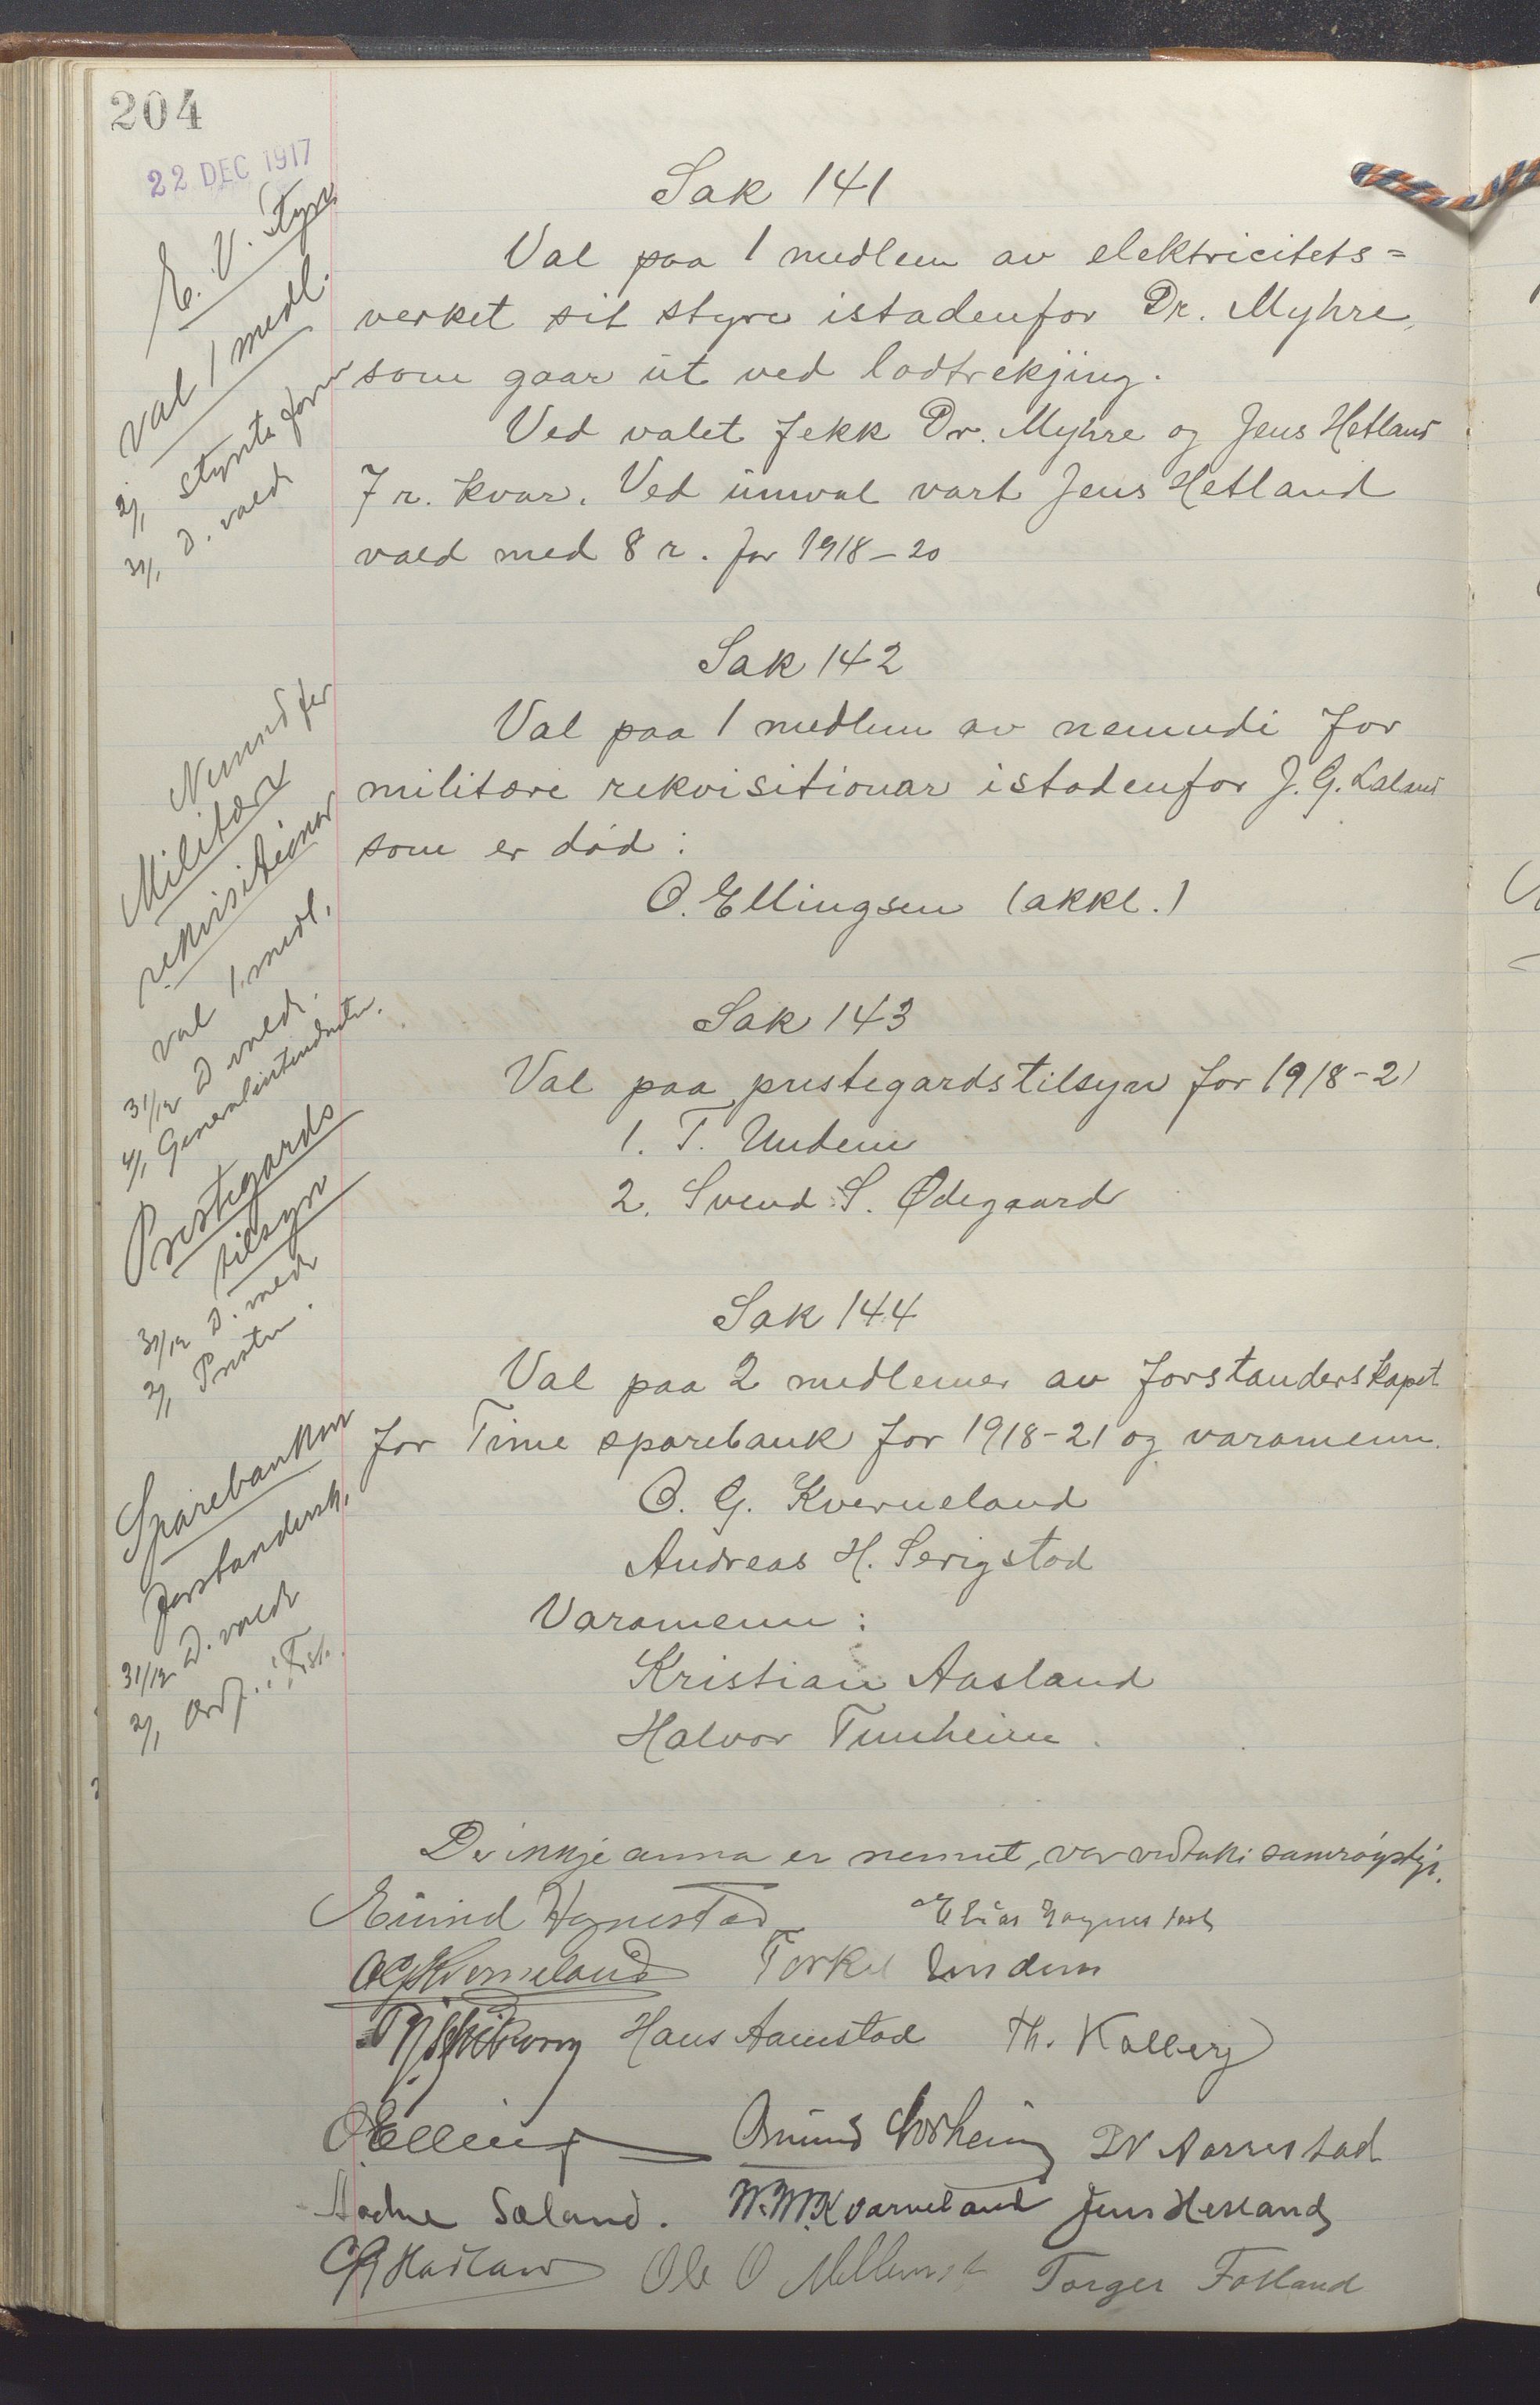 204
22 DEC 1917
E. V. Styre
Val 1 medl.
2/1 styrets form
31/1 d. valde
Sak 141
Val paa 1 medlem av elektricitets=
verket sit styre istadenfor Dr. Myhre,
som gaar ut ved lodtrekjing.
Ved valet fekk Dr. Myhre og Jens Hetland
7 r. kvar. Ved umval vart Jens Hetland
vald med 8 r. for 1918-20
Nemnd for
Militære
rekvisitionar
val 1 medl.
31/12 D valde.
4/1 Generalintendanten.
Sak 142
Val paa 1 medlem av nemndi for
militære rekvisitionar istadenfor J. G. Laland
som er död:
O. Ellingsen (akkl.)
Prestegards
tilsyn
31/12 D. valde
2/1 Presten.
Sak 143
Val paa prestegardstilsyn for 1918-21
1. T. Undem
2. Svend S. Ødegaard
Sparebanken
forstandersk.
31/12 D. valde
2/1 Ordf. i F.st.
Sak 144
Val paa 2 medlemer av forstanderskapet
for Time sparebank for 1918-21 og varamenn.
O. G. Kverneland
Andreas H. Serigstad
Varamenn:
Kristian Aasland
Halvor Tunheim.
Der inkje anna er nemnt, var vedtaki samröystige.
Eivind Hognestad Elias Hognestad
O G Kverneland Torkel Undem
Hans Aanestad Th. Kalberg
O Ellingsen Omund Norheim P N Aarrestad
Aadne Søland. W. W. Kvarneland Jens Hetland
Ole O Torger Fotland